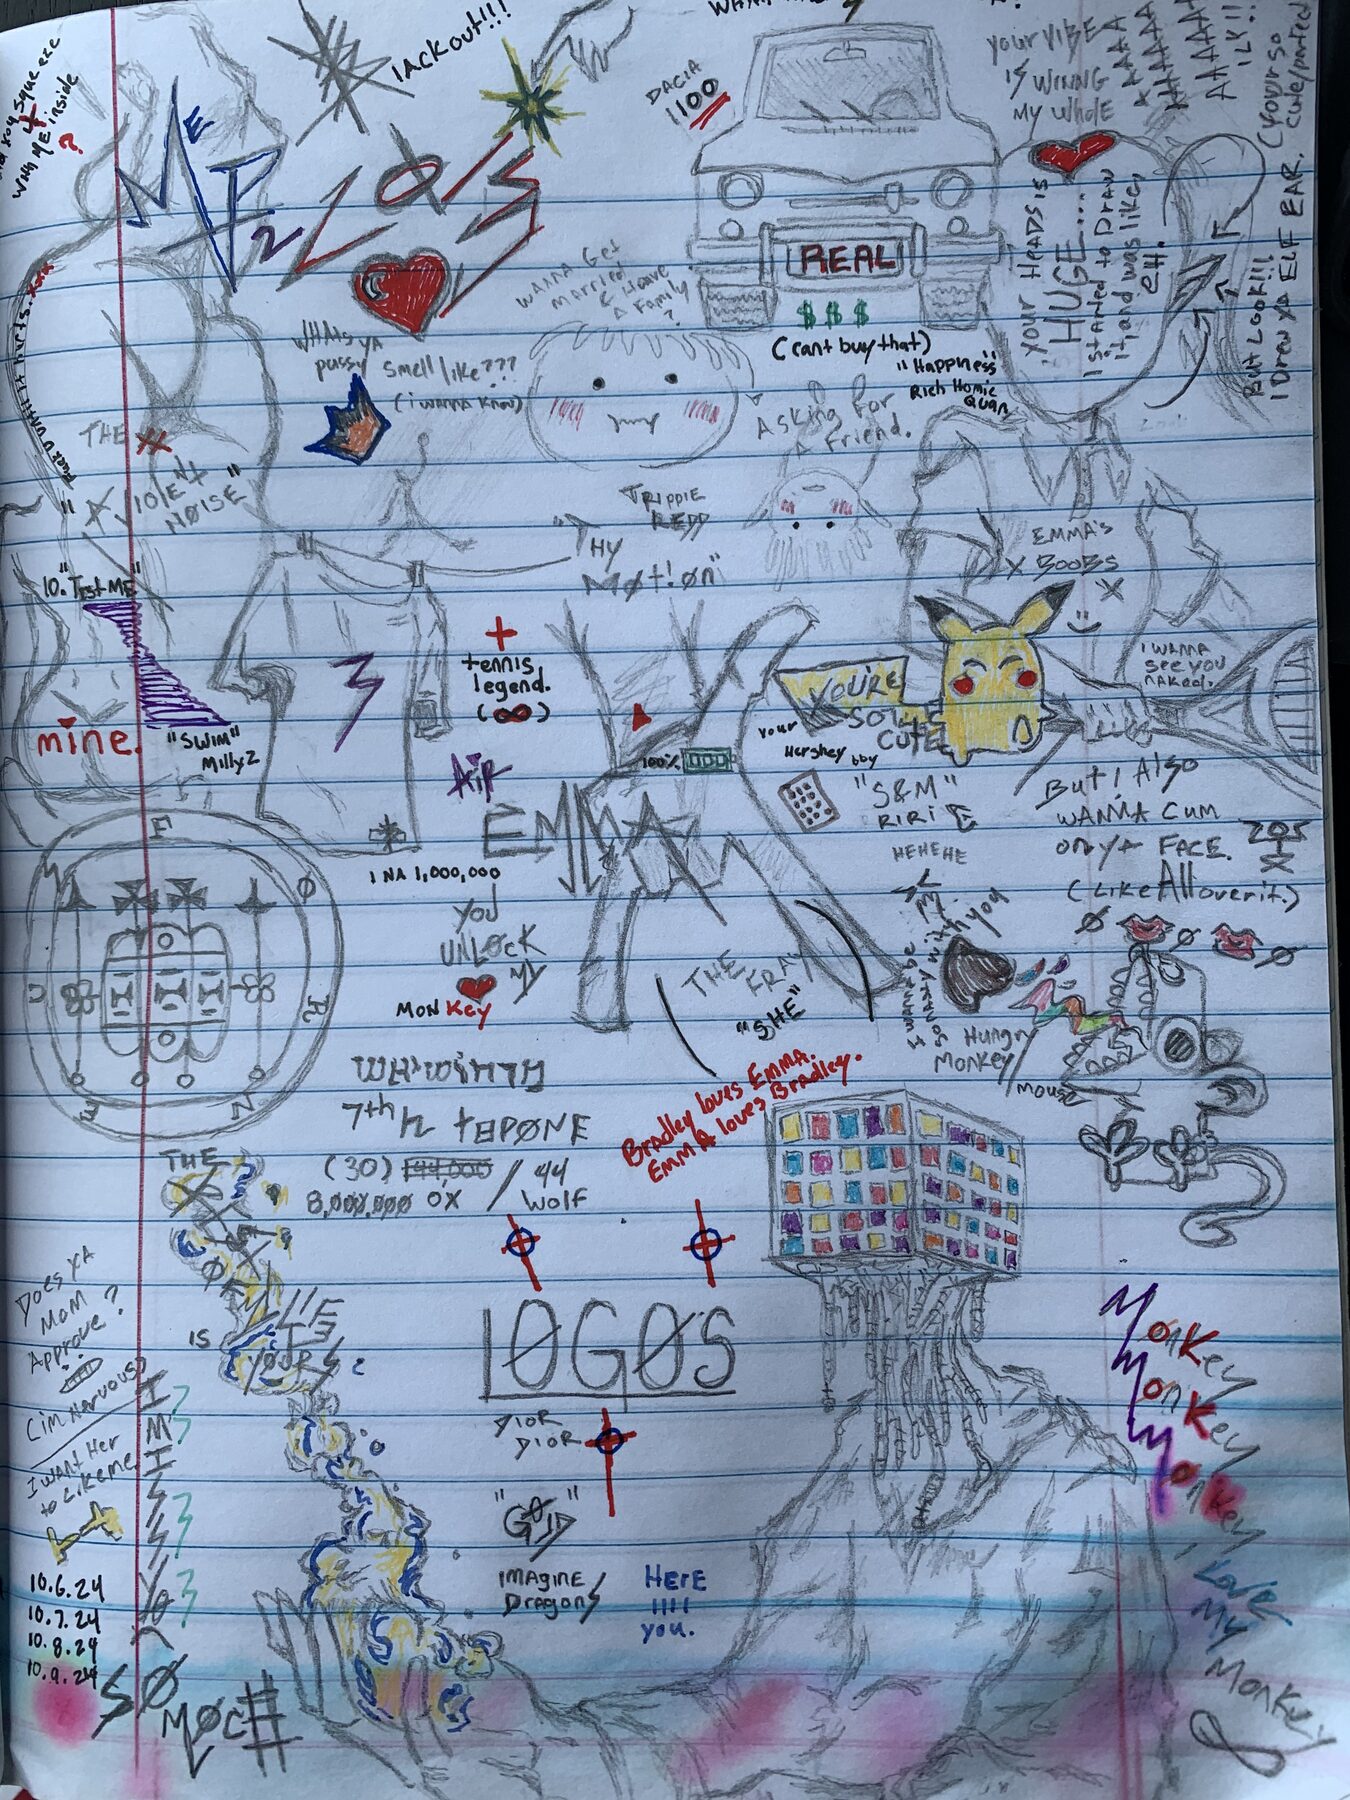 lackout!!!
DACIA
1100
REAL
$ $ $
(cant buy that)
"Happiness"
Rich Homie
Quan
your VIBE
is WINNING
My whole
AAAAAA
ILY!!
(your so
cute/perfect
YOUR HEADS IS
HUGE....
I started to Draw
it and was like,
eH.
But LooK!!!
I Drew YA ELF EAR.
squeeze
with ME inside
?
WANNA Get
Married
& Have
a Family
?
WHAts YA
pussy
smell like???
(i wanna know)
Asking for
A Friend.
THE
VIOLENT
NOISE"
TRIPPIE
REDD
"THY
Møt!øn"
EMMA'S
BOOBS
X X
I WANNA
SEE YOU
NAKED.
10. "Test ME"
mine.
"SWIM"
Milly Z
+
tennis
legend.
(∞)
AiR
100%
YOU'RE
SO
CUTE
your
Hershey bby
"S&M"
RiRi
HEHEHE
EMMA
1 NA 1,000,000
YOU
UNLOCK
MY
MonKey
But I Also
WANNA CUM
on YA FACE.
(Like All over it.)
THE FRAY
"SHE"
Hungry
Monkey/
Mouse
F
Ø
R
N
E
U
7th
(30) 144,000 / 44
8,000,000 OX wolf
Bradley loves EMMA.
EMMA loves Bradley.
THE
ØF
IS
YOURS
Does YA
MOM
Approve?
(im Nervous)
I want Her
to Like me
10.6.24
10.7.24
10.8.24
10.9.24
I
M
I
S
S
Yo
SØ
MøcH
lØGØS
DIOR
DIOR
"GØlD"
IMAgine
DragonS
HERE
you.
MonKey
MonKey
MonKey
Love,
My
MonKey